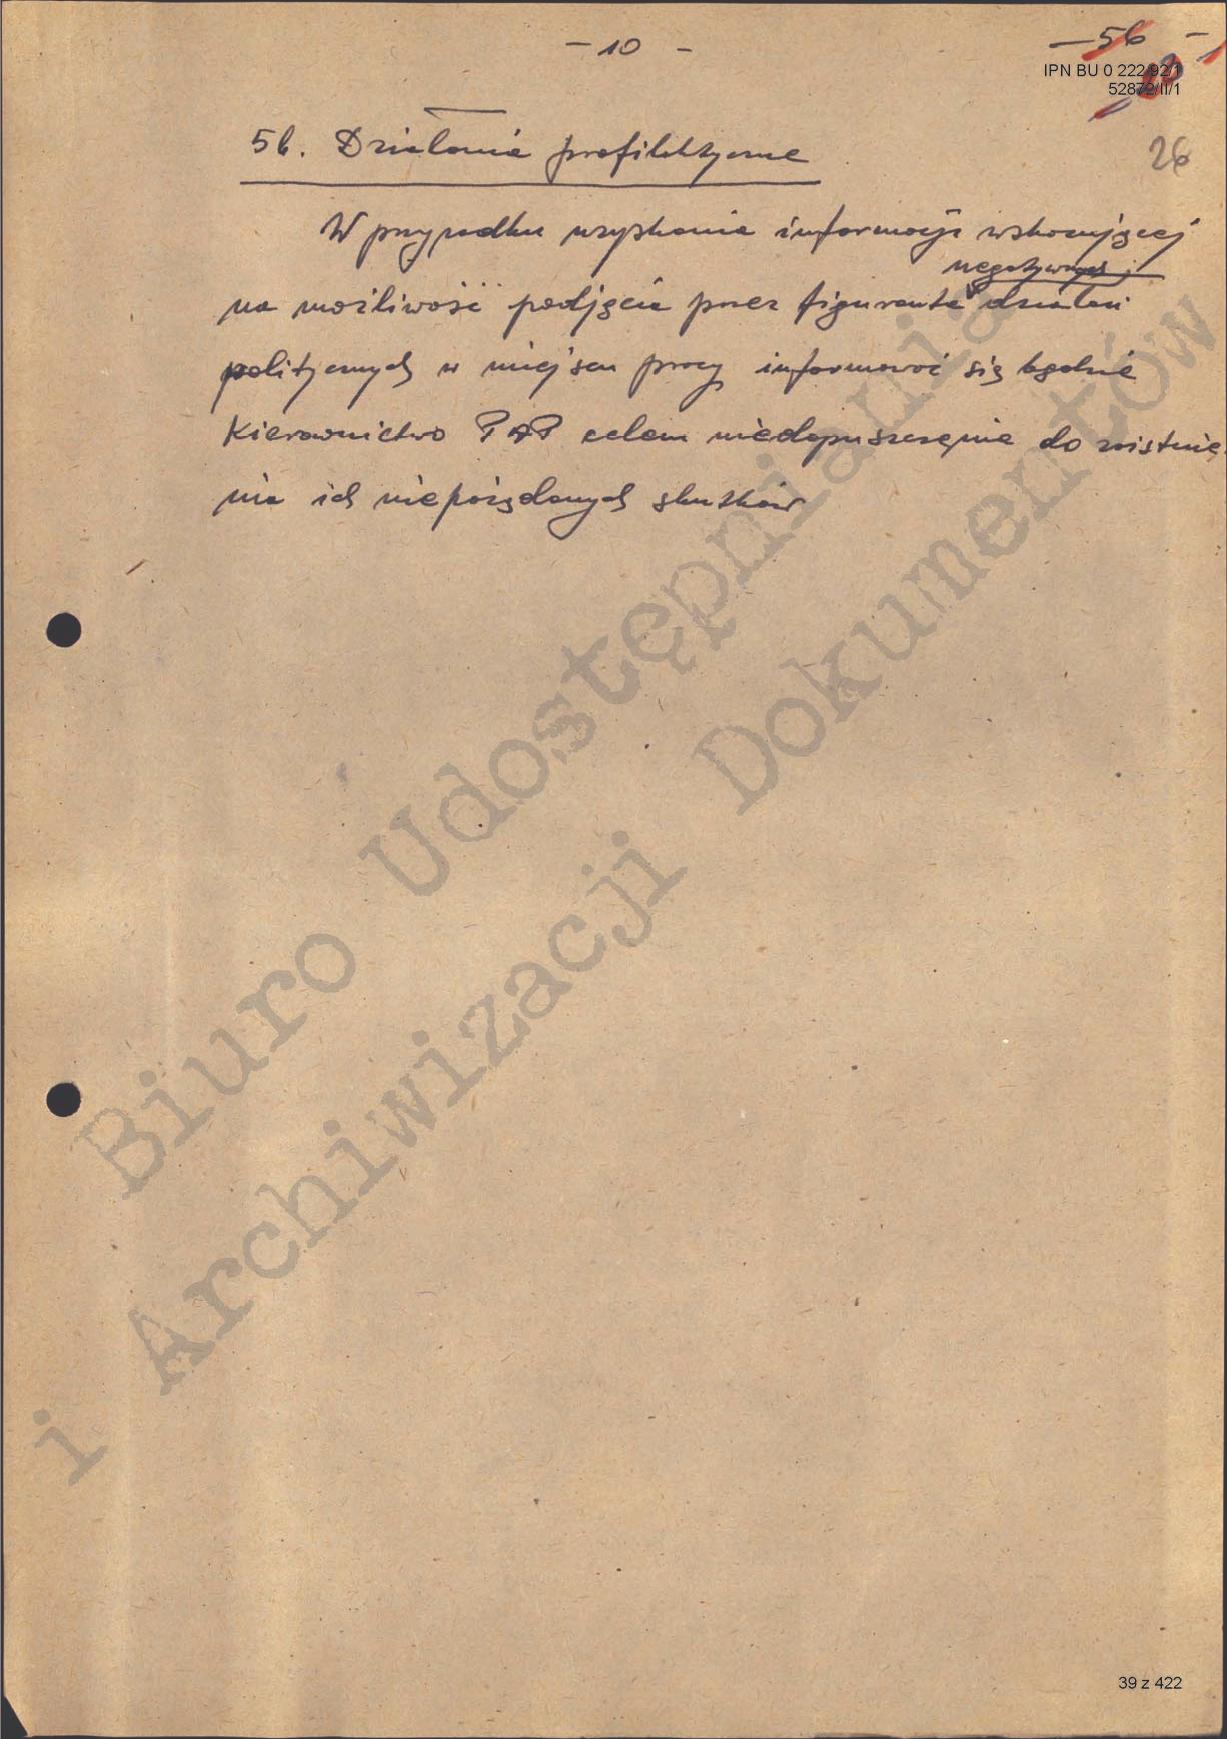 - 10 -
- 56 -
IPN BU 0 222/92/1
52872/II/1
26
5b. Działania profilaktyczne
W przypadku uzyskania informacji wskazującej
negatywnych
na możliwość podjęcia przez figuranta działań
politycznych w miejscu pracy informować się będzie
Kierownictwo PAP celem niedopuszczenie do zaistnie
nia ich niepożądanych skutków
Biuro Udostępniania
i Archiwizacji Dokumentów
39 z 422